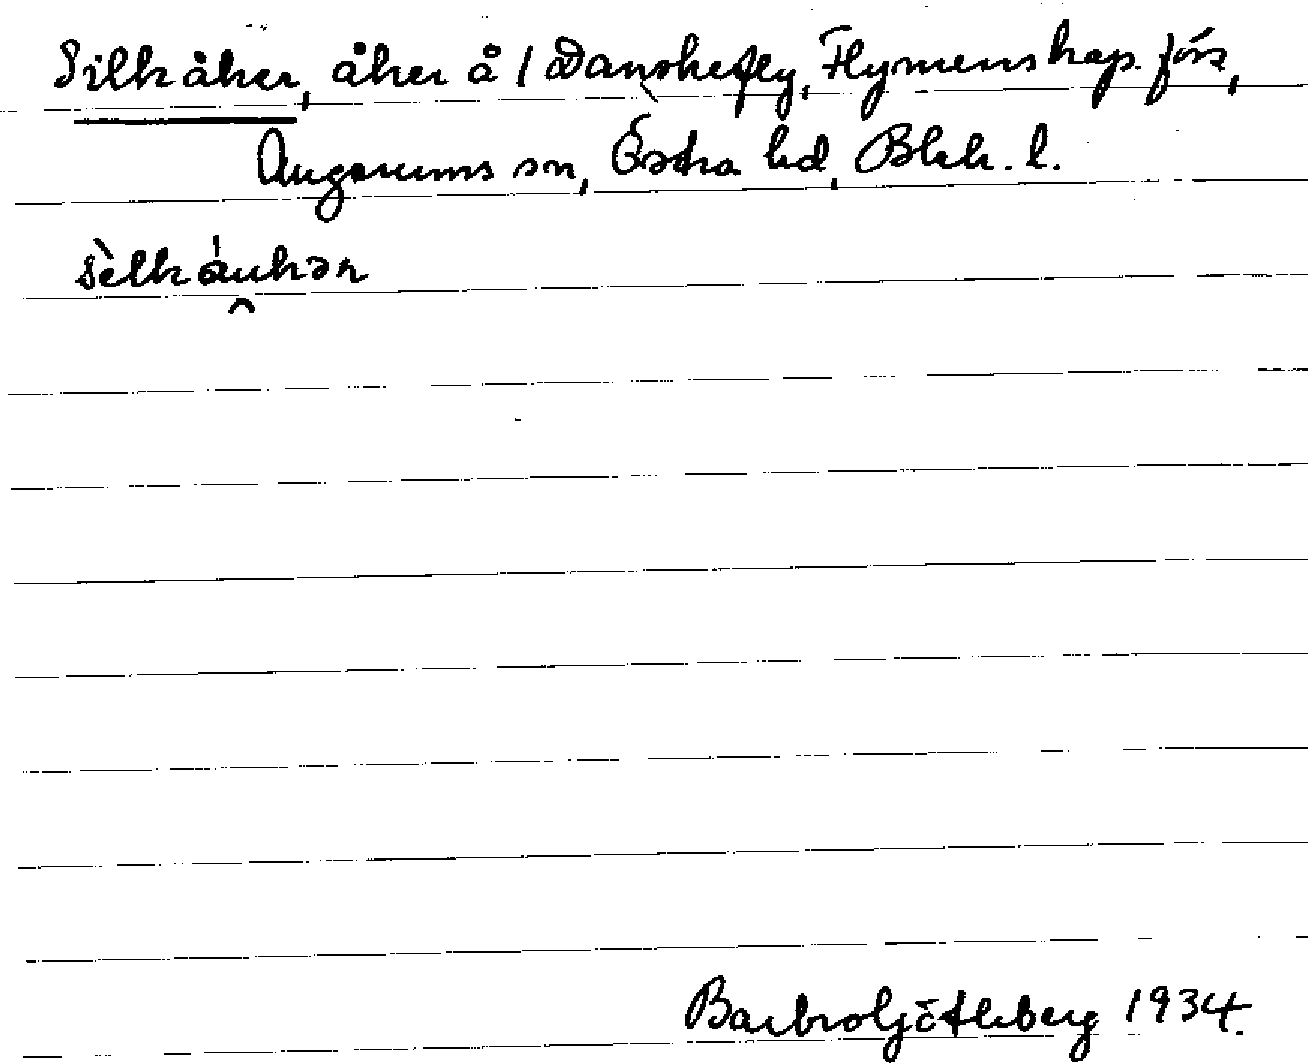 Silkåker, åker å 1 Danskefly, Flymenskap. förs,
Augerums sn, Östra hd, Blek. l.
sèlkáukər
Barbro Götleberg 1934.